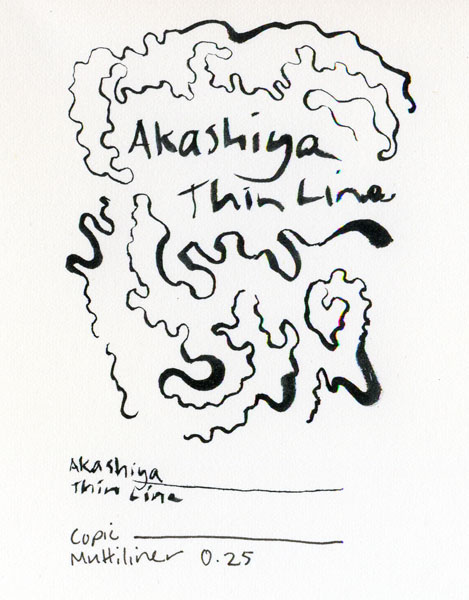 Akashiya
Thin Line
Akashiya
Thin Line
Copic
Multiliner 0.25